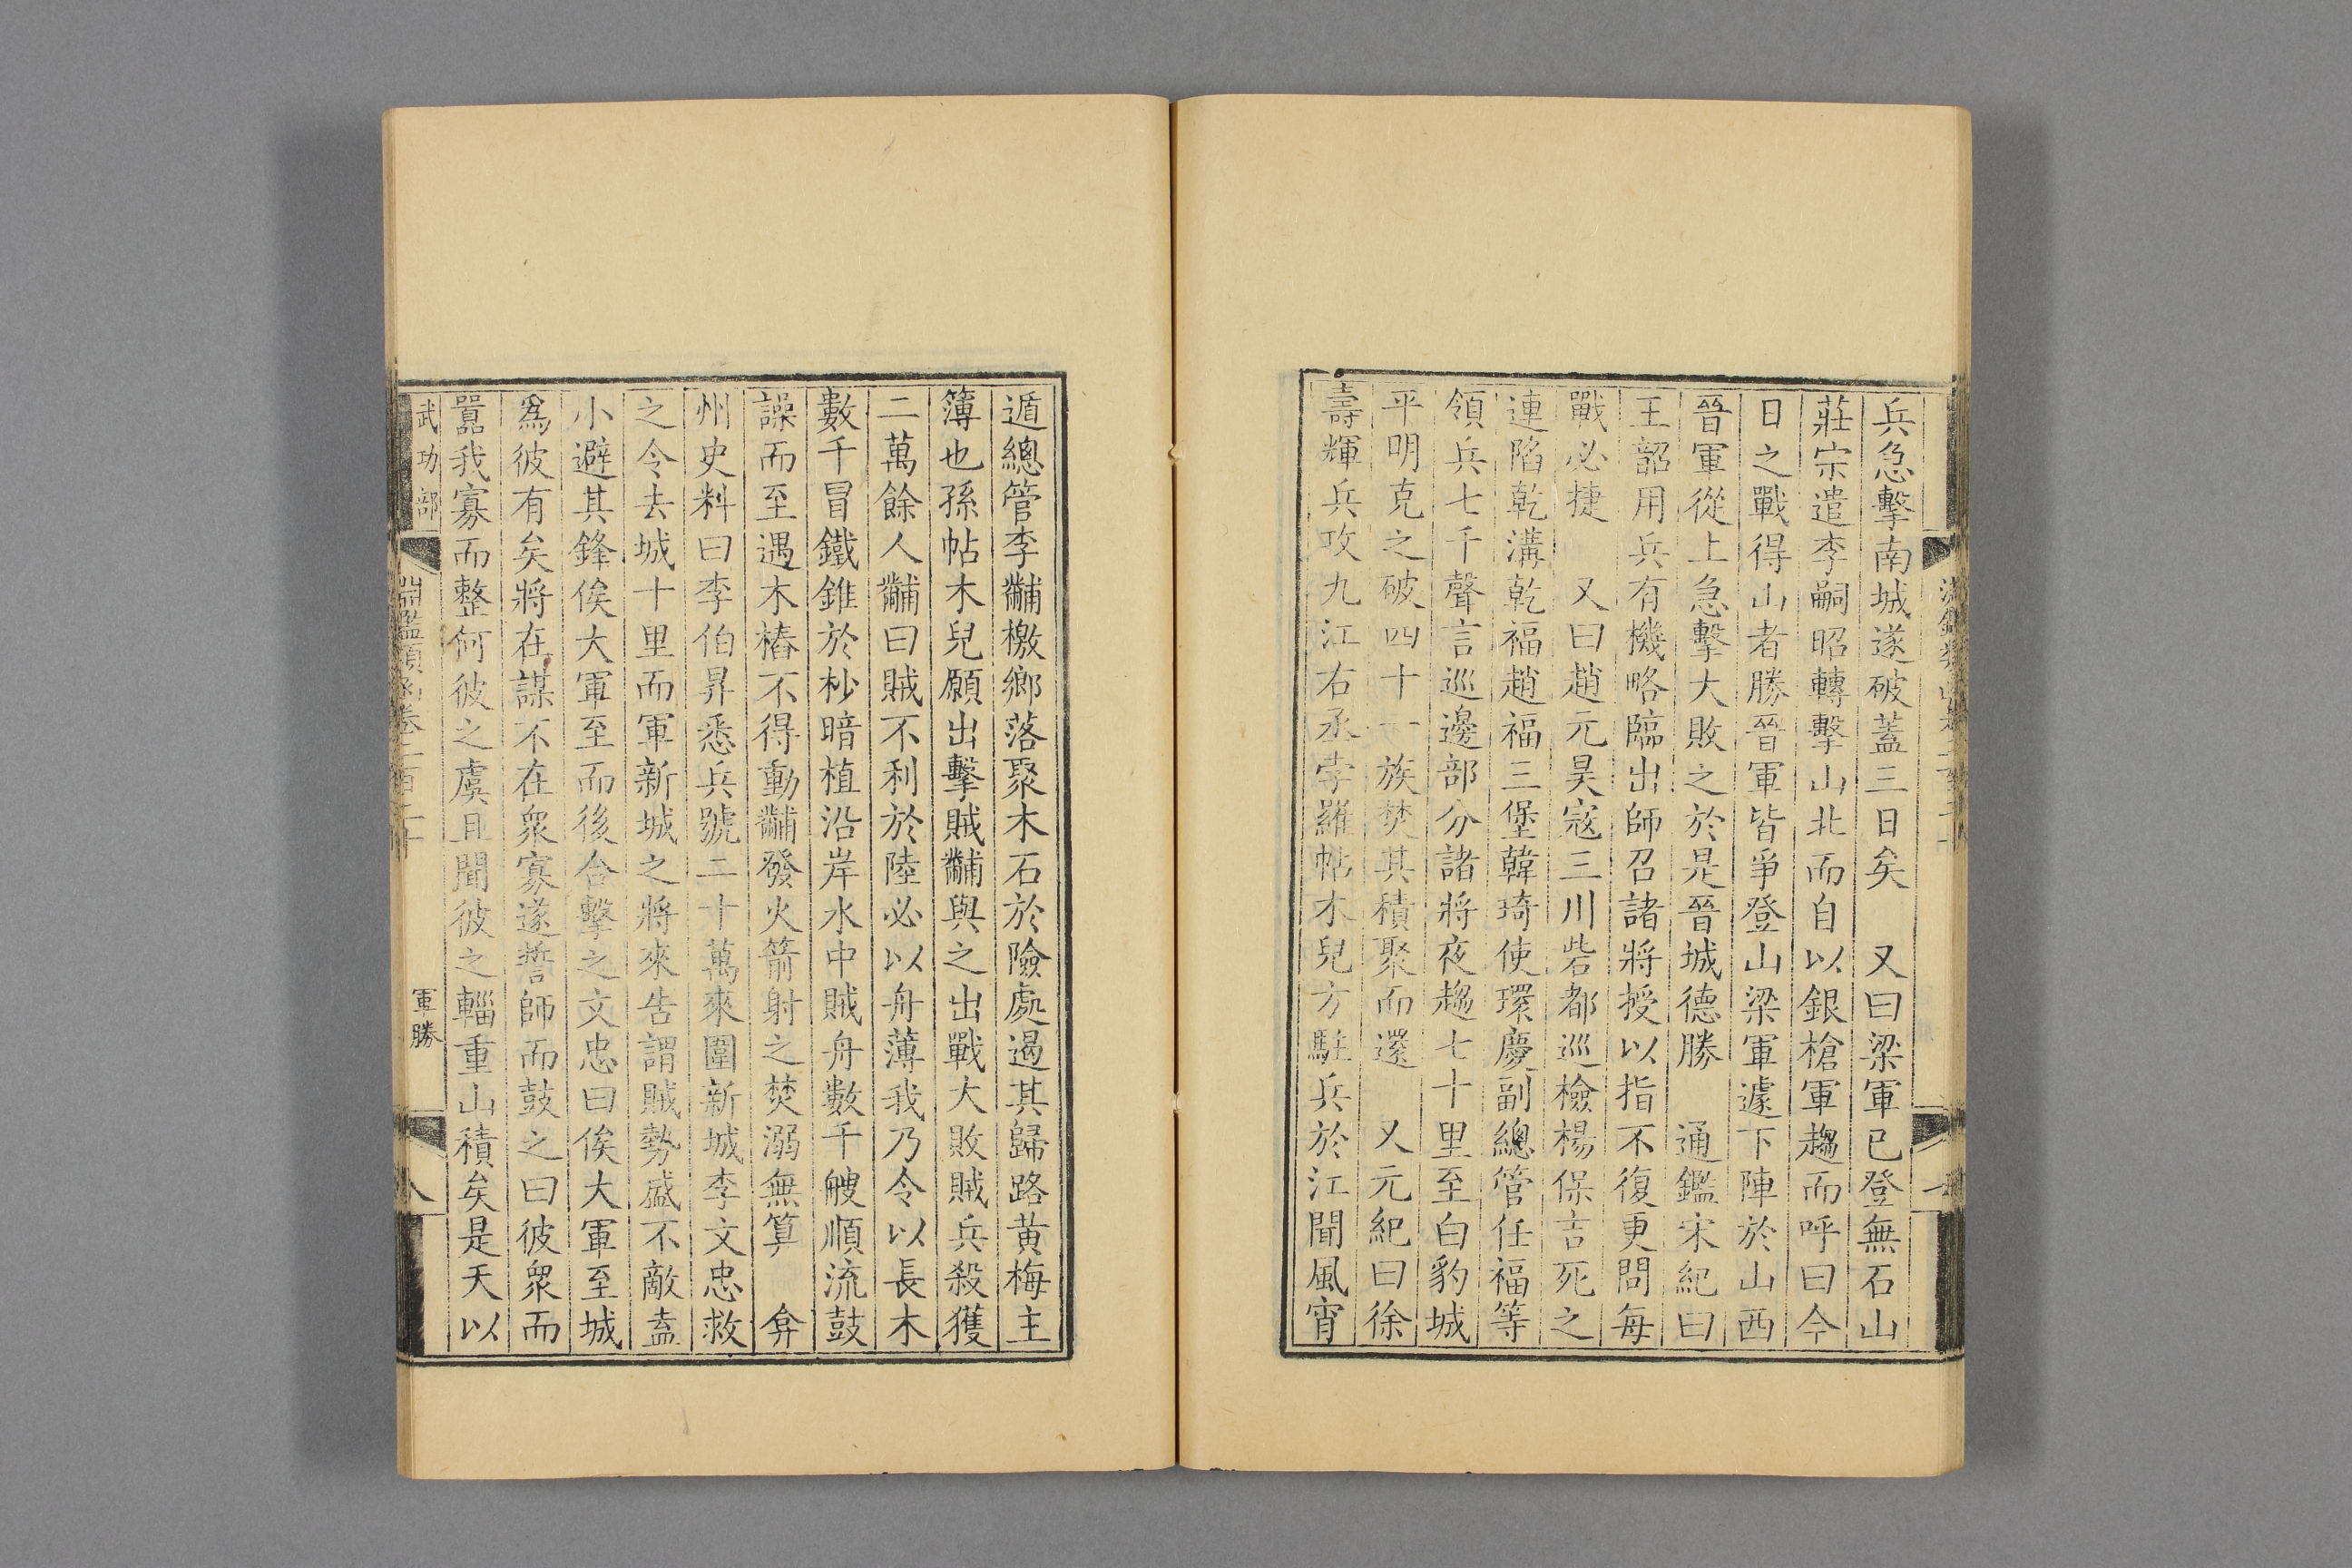 兵急擊南城遂破蓋三日矣　又曰梁軍已登無石山
莊宗遣李嗣昭轉擊山北而自以銀槍軍趨而呼曰今
日之戰得山者勝晉軍皆爭登山梁軍遽下陣於山西
晉軍從上急擊大敗之於是晉城德勝　通鑑宋紀曰
王韶用兵有機略臨出師召諸將授以指不復更問每
戰必捷　又曰趙元昊寇三川砦都巡檢楊保吉死之
連陷乾溝乾福趙福三堡韓琦使環慶副總管任福等
領兵七千聲言巡邊部分諸將夜趨七十里至白豹城
平明克之破四十一族焚其積聚而還　又元紀曰徐
壽輝兵攻九江右丞孛羅帖木兒方駐兵於江聞風宵
遁總管李黼檄鄉落聚木石於險處遏其歸路黄梅主
簿也孫帖木兒願出擊賊黼與之出戰大敗賊兵殺獲
二萬餘人黼曰賊不利於陸必以舟薄我乃令以長木
數千冒鐵錐於杪暗植沿岸水中賊舟數千艘順流鼓
譟而至遇木樁不得動黼發火箭射之焚溺無算　弇
州史料曰李伯昇悉兵號二十萬來圍新城李文忠救
之令去城十里而軍新城之將來告謂賊勢盛不敵盍
小避其鋒俟大軍至而後合擊之文忠曰俟大軍至城
爲彼有矣將在謀不在衆寡遂誓師而鼓之曰彼衆而
囂我寡而整何彼之虞且聞彼之輜重山積矣是天以
武功部
淵鑑類函卷二百二十
軍勝
八